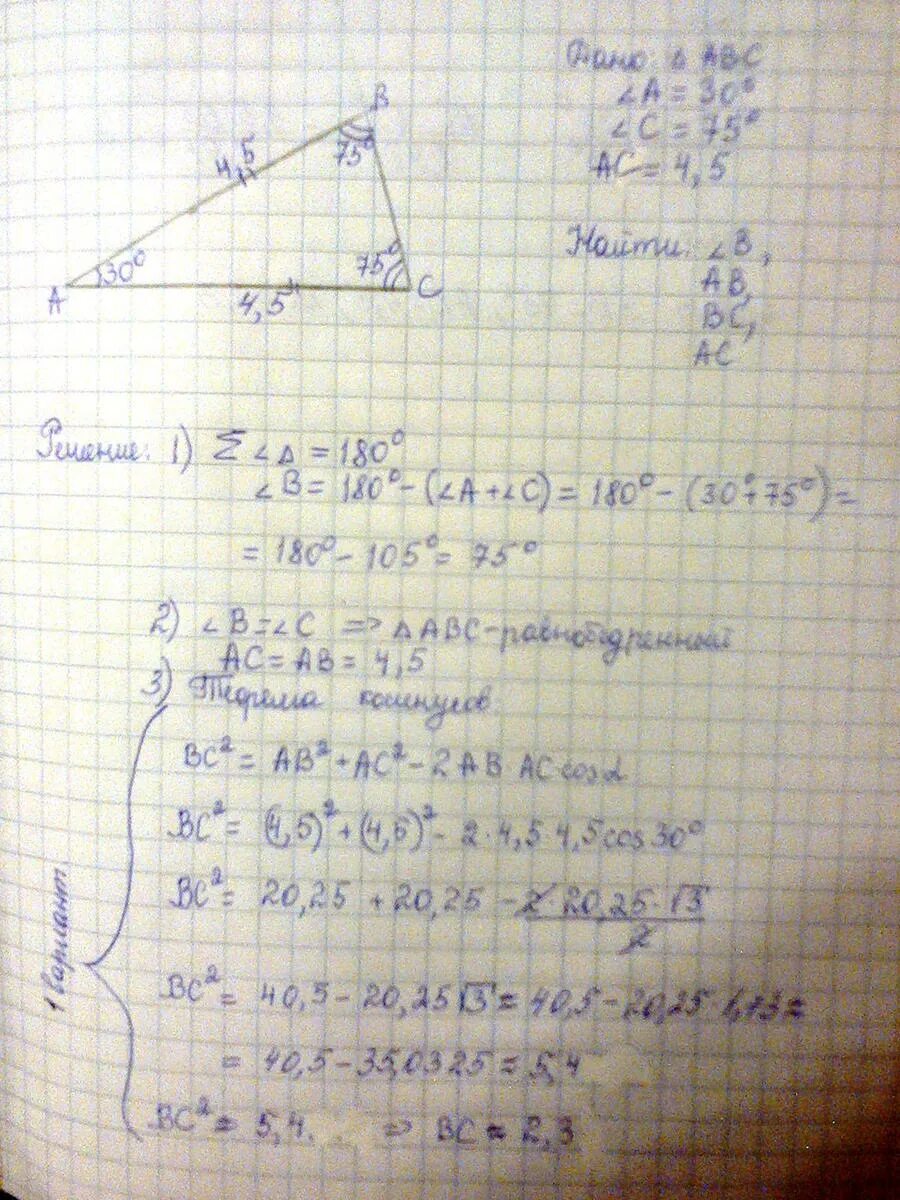 B
4,5
75°
30°
75°
A
4,5
C
Дано: △ ABC
∠A = 30°
∠C = 75°
AC = 4,5
Найти: ∠B,
AB,
BC,
AC
Решение: 1) Σ ∠△ = 180°
∠B = 180° - (∠A + ∠C) = 180° - (30°+75°) =
= 180° - 105° = 75°
2) ∠B = ∠C => △ ABC - равнобедренный
AC = AB = 4,5
3) Теорема косинусов.
BC² = AB² + AC² - 2 AB · AC cos α
BC² = (4,5)² + (4,5)² - 2 · 4,5 · 4,5 cos 30°
BC² = 20,25 + 20,25 - 2 · 20,25 · √3 / 2
BC² = 40,5 - 20,25 √3 = 40,5 - 20,25 · 1,73 =
= 40,5 - 35,0325 = 5,4
BC² = 5,4. => BC ≈ 2,3
1 вариант.